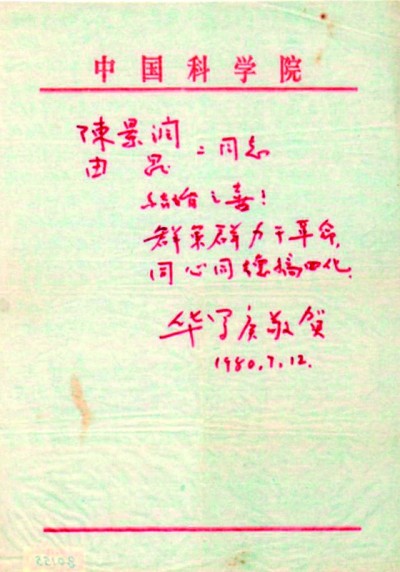 中国科学院
陳景润
由昆 二同志
结婚之喜!
群策群力干革命,
同心同德搞四化.
华罗庚敬贺
1980.7.12.